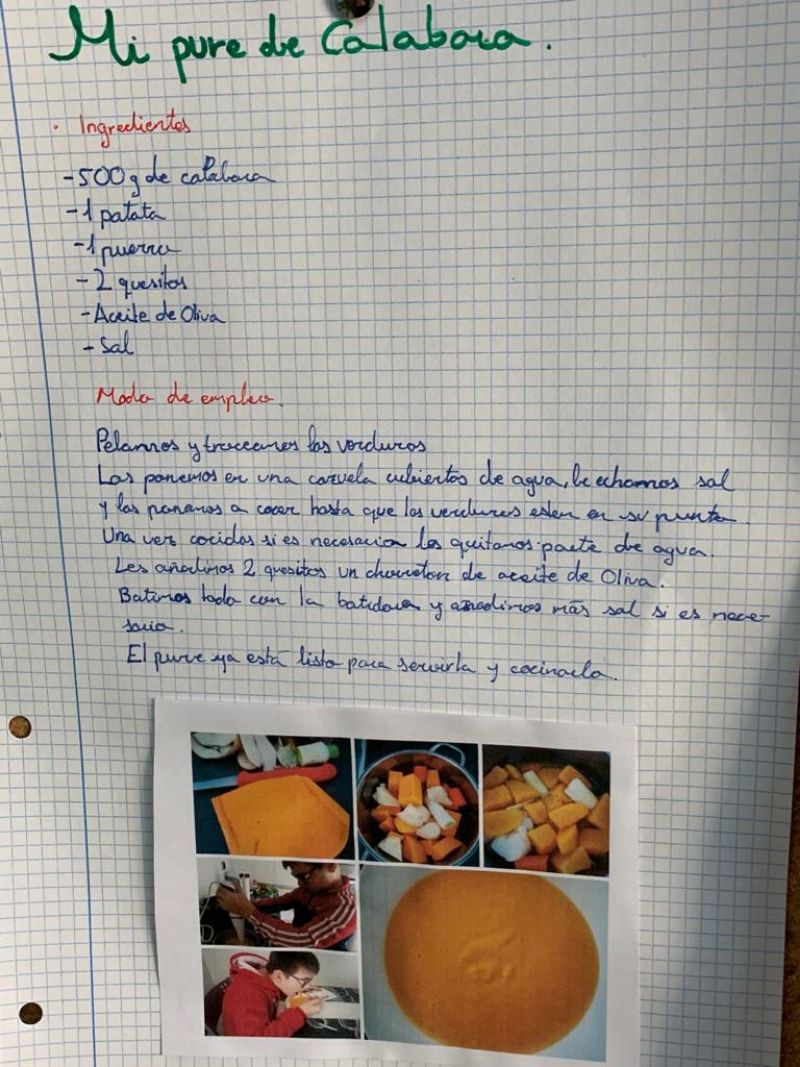 Mi pure de Calabaza.
· Ingredientes
-500g de calabaza
-1 patata
-1 puerro
-2 quesitos
-Aceite de Oliva
-Sal
Modo de empleo.
Pelamos y troceamos las verduras
Las ponemos en una cazuela cubiertas de agua, le echamos sal
y las ponemos a cocer hasta que las verduras esten en su punto.
Una vez cocidas si es necesario les quitamos parte de agua.
Les añadimos 2 quesitos un chorreton de aceite de Oliva.
Batimos todo con la batidora y añadimos más sal si es nece-
sario.
El pure ya está listo para servirla y cocinarla.